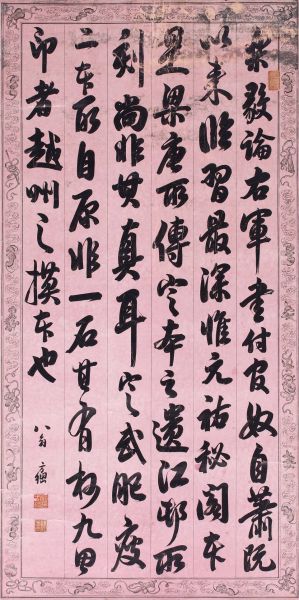 樂毅論右軍書付官奴自蕭阮
以來臨習最深惟元祐秘閣本
是梁唐所傳定本之遺江邨所
刻尚非其真耳定武肥瘦
二本所自原非一石其有柯九思
印者越州之摸本也